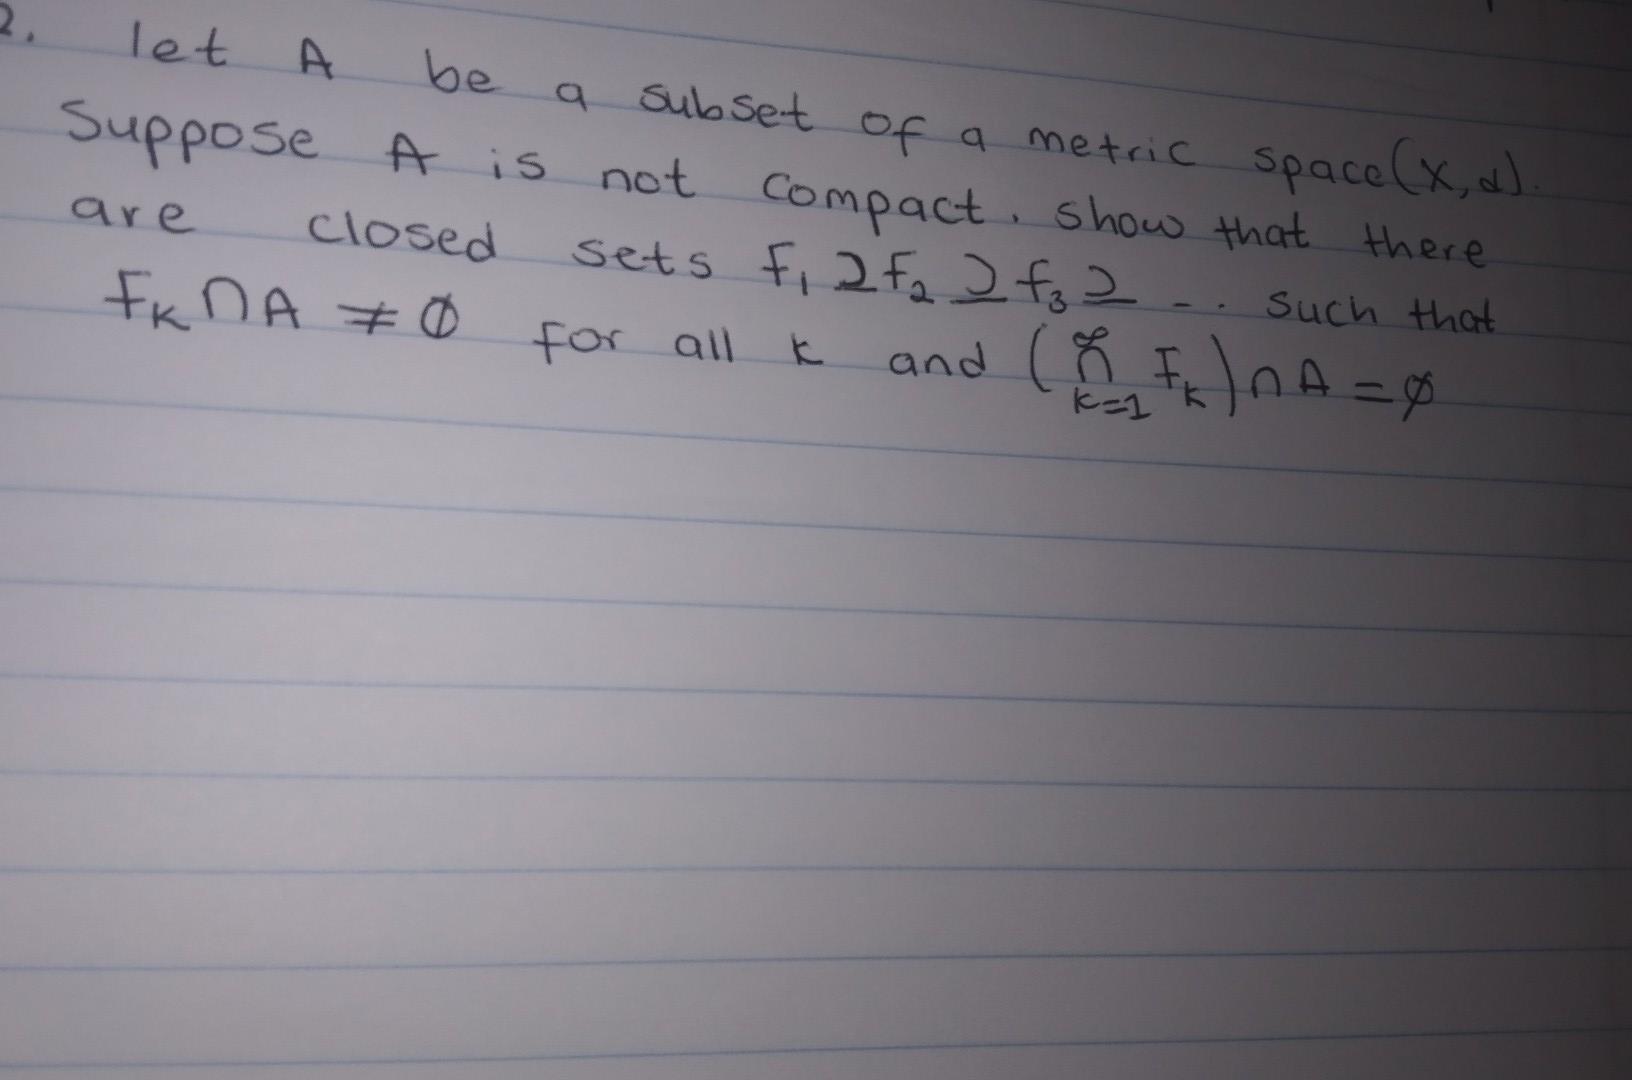 2. let A be a subset of a metric space (X,d).
Suppose A is not compact. show that there
are closed sets F₁ ⊇ F₂ ⊇ F₃ ⊇ ... such that
Fₖ ∩ A ≠ ∅ for all k and (∞∩k=1 Fₖ) ∩ A = ∅